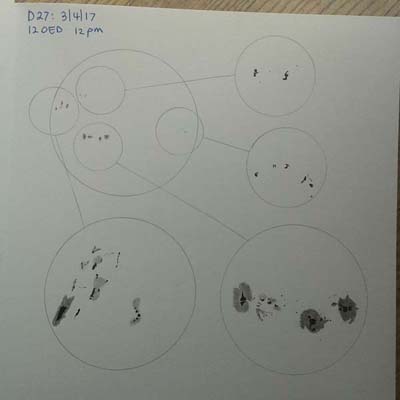 D27: 3/4/17
12OED 12pm